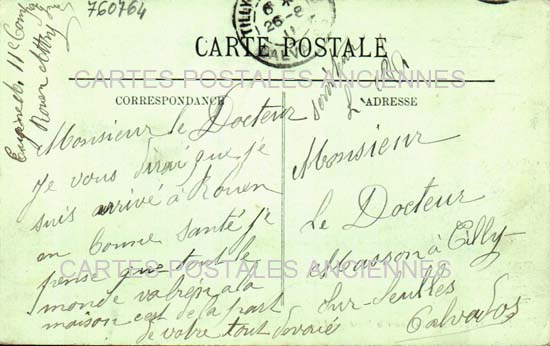 760764
TILLY
26-8
CALVADOS
CARTE POSTALE
CARTES POSTALES ANCIENNES
CORRESPONDANCE
ADRESSE
11e
Rouen
Monsieur le Docteur
Je vous dirai que je
suis arrivé à Rouen
en bonne santé je
pense que tout le
monde va bien a la
maison c'est de la part
de votre tout dovoué
Monsieur
Le Docteur
Masson à Tilly
Sur-Seulles
Calvados
CARTES POSTALES ANCIENNES